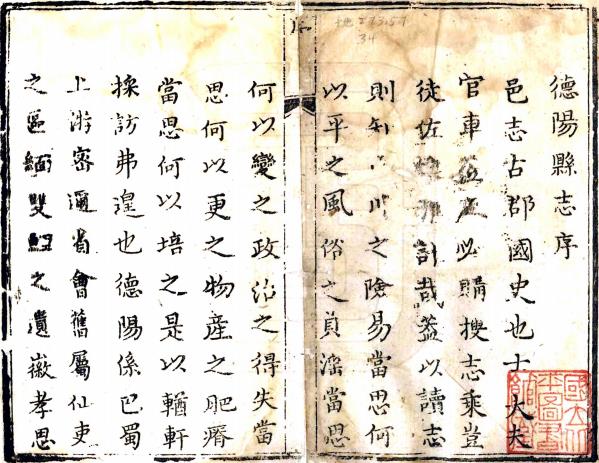 德陽縣志序
邑志古郡國史也士大夫
官車必購搜志乘豈
徒佐哉蓋以讀志
則知川之險易當思何
以平之風俗之貞淫當思
何以變之政治之得失當
思何以更之物產之肥瘠
當思何以培之是以輶軒
採訪弗遑也德陽係巴蜀
上游密邇省會舊屬仙吏
之區緬雙之遺徽孝思
序
地 273.57
34